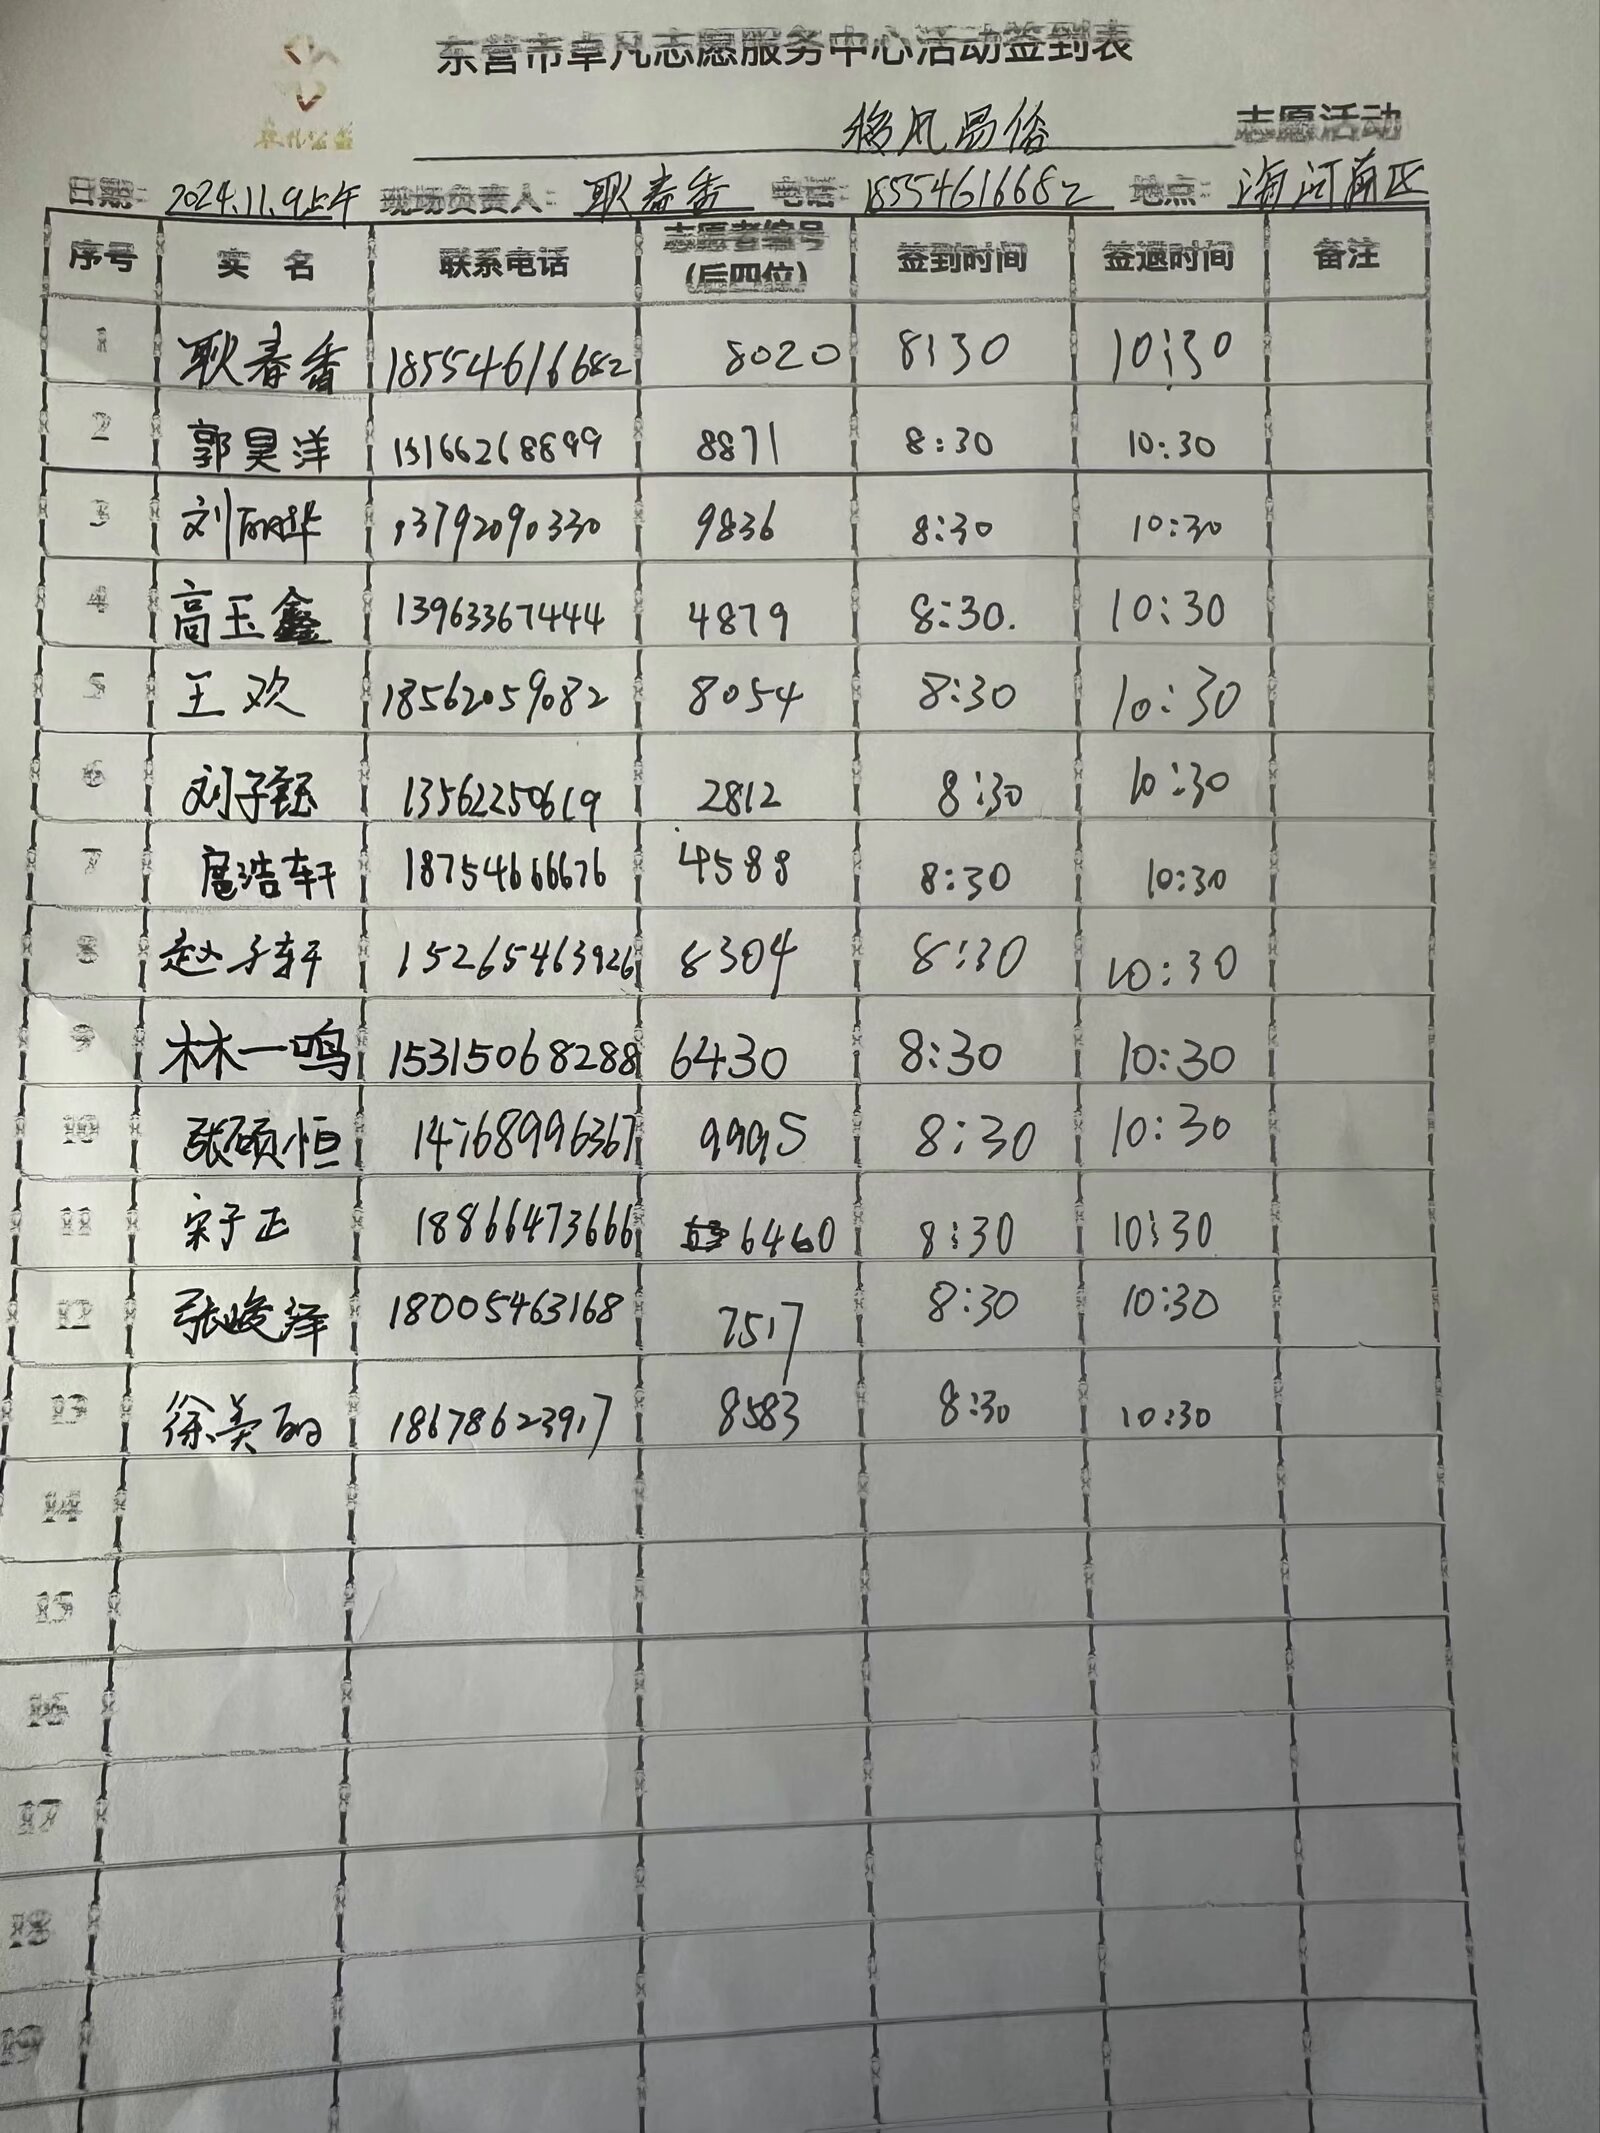 东营市卓凡志愿服务中心活动签到表
卓凡公益
移风易俗 志愿活动
日期: 2024.11.9上午 现场负责人: 耿春香 电话: 18554616682 地点: 海河南区
序号 实 名 联系电话 志愿者编号(后四位) 签到时间 签退时间 备注
1 耿春香 18554616682 8020 8:30 10:30
2 郭昊洋 15166268899 8871 8:30 10:30
3 刘丽华 13792090330 9836 8:30 10:30
4 高玉鑫 13963367444 4879 8:30. 10:30
5 王欢 18562059082 8054 8:30 10:30
6 刘子钰 13562250619 2812 8:30 10:30
7 扈浩轩 18754666676 4588 8:30 10:30
8 赵子轩 15265463926 8304 8:30 10:30
9 林一鸣 15315068288 6430 8:30 10:30
10 张硕恒 14768996367 9995 8:30 10:30
11 宋子正 18866473666 6460 8:30 10:30
12 张峻泽 18005463168 7517 8:30 10:30
13 徐美丽 18678623917 8583 8:30 10:30
14
15
16
17
18
19